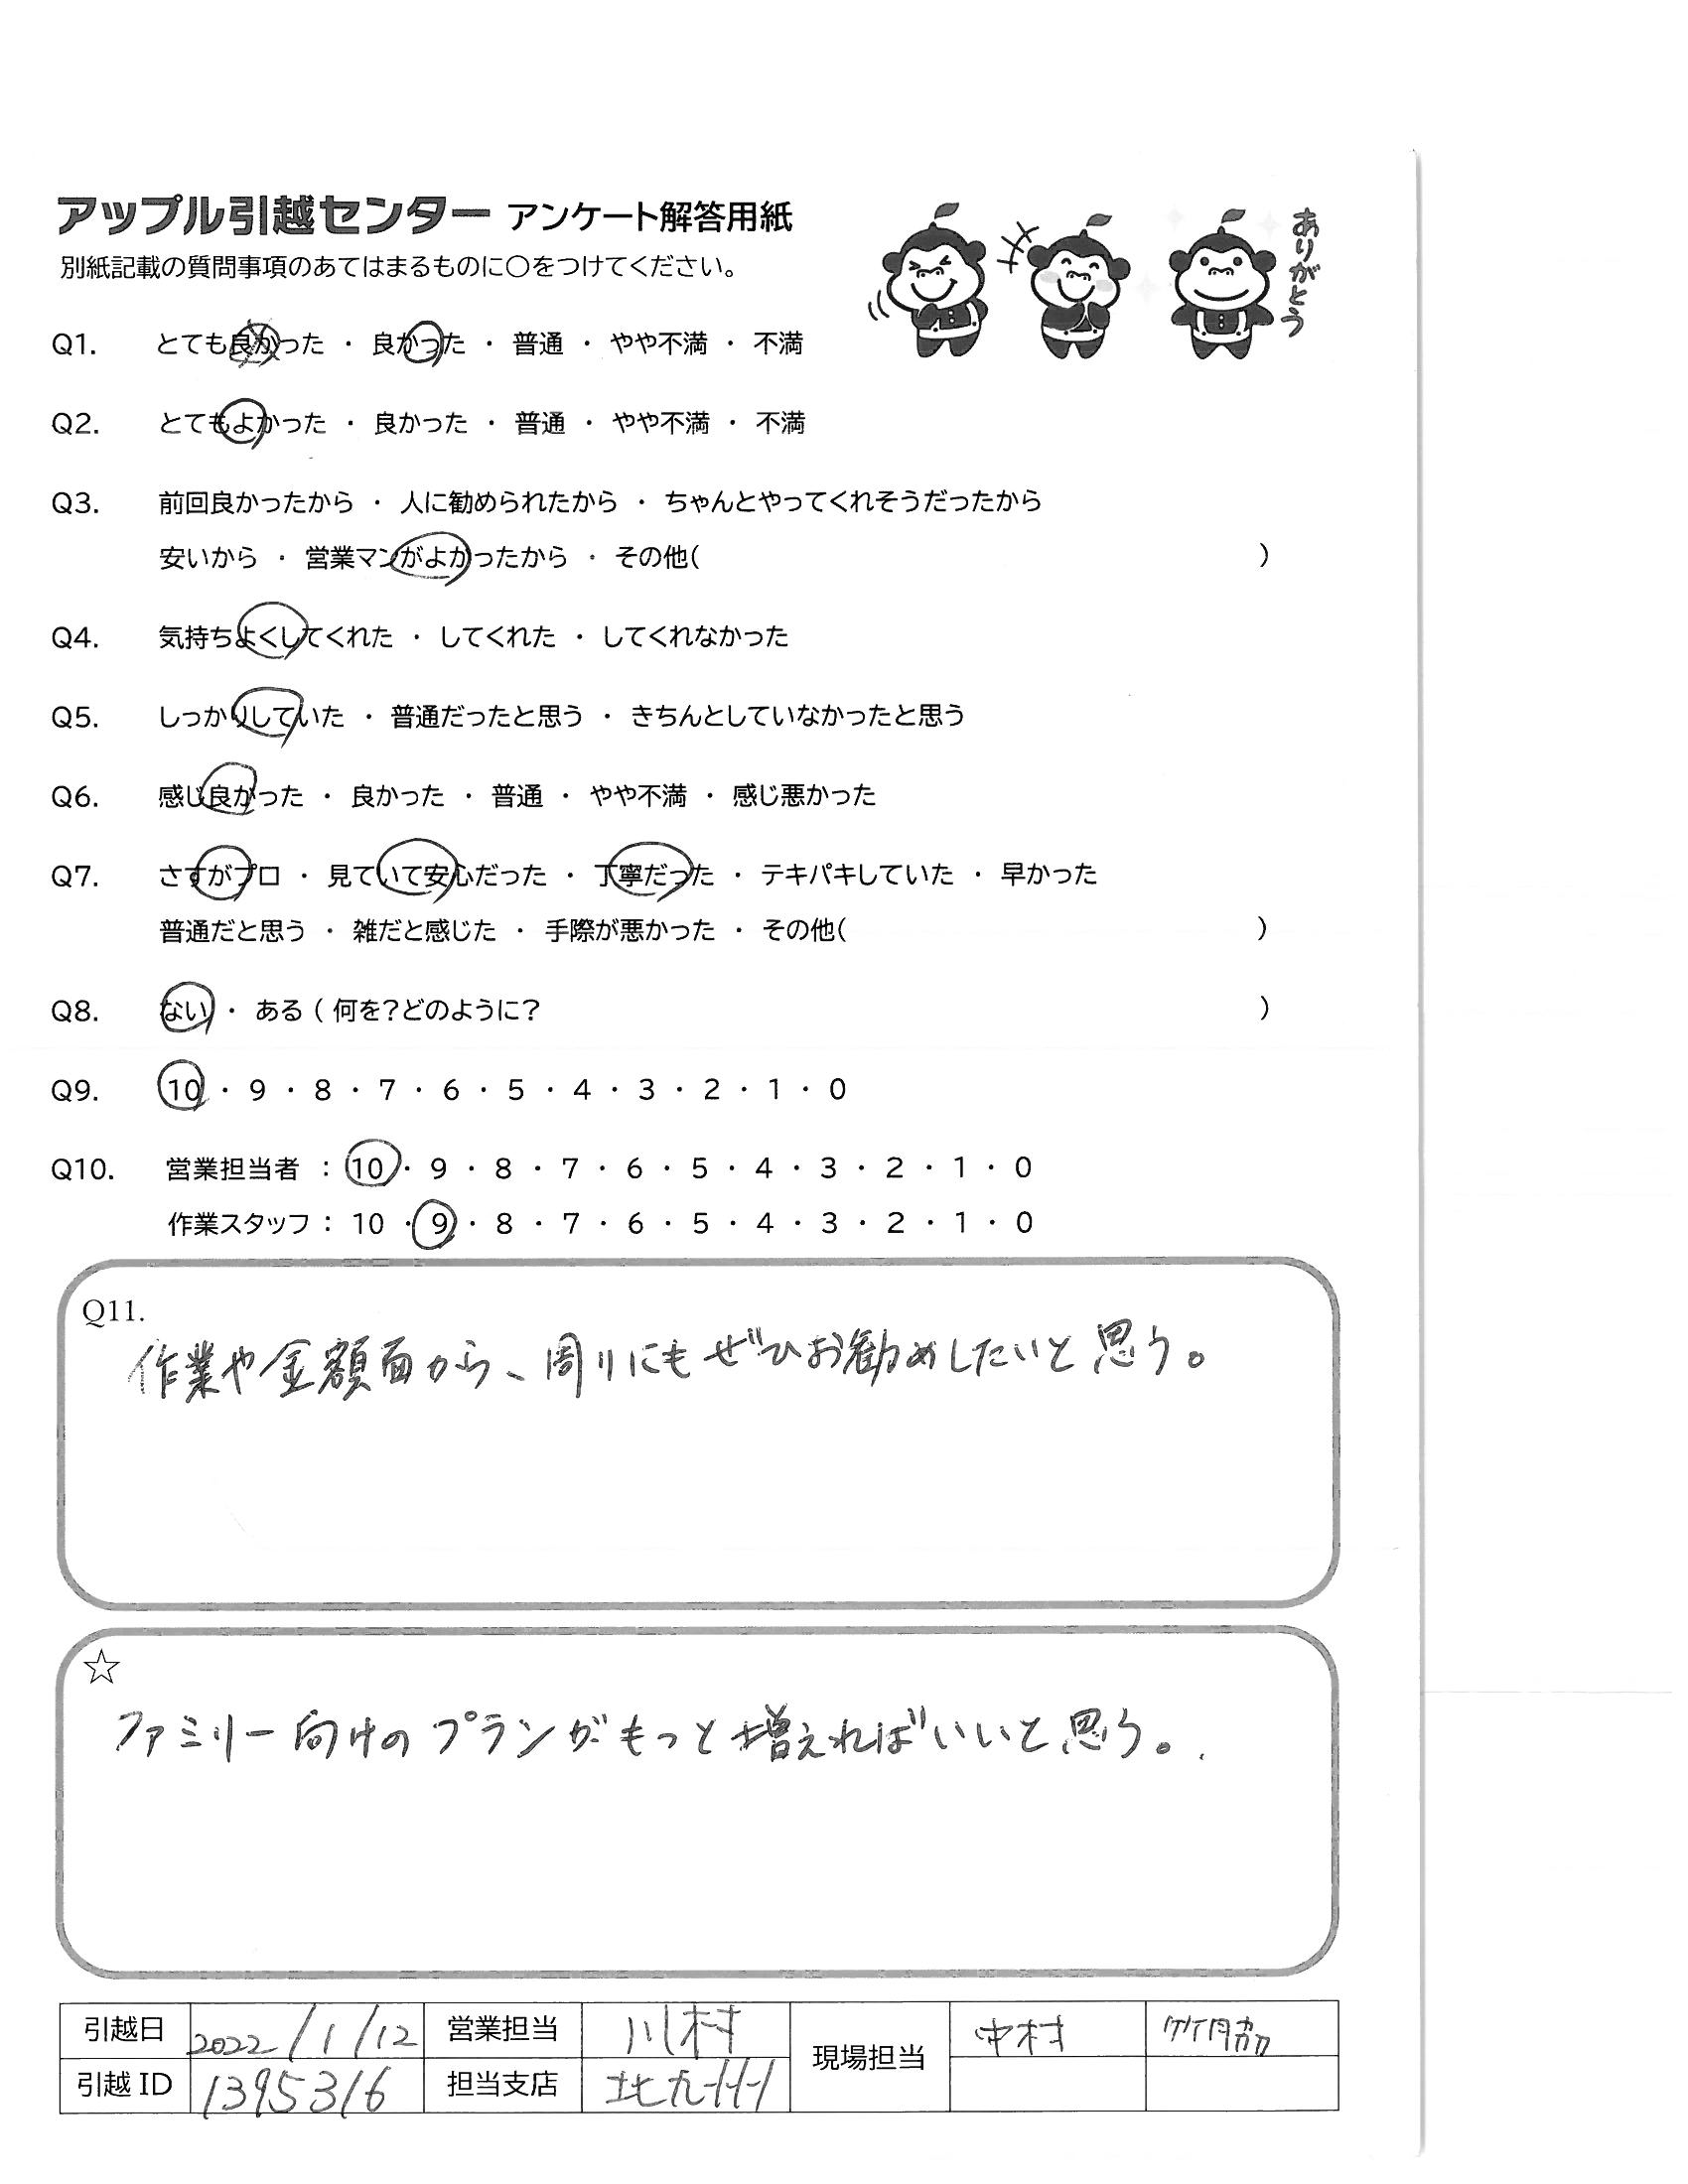 アップル引越センター アンケート解答用紙
別紙記載の質問事項のあてはまるものに〇をつけてください。
ありがとう
Q1. とても良かった ・ 良かった ・ 普通 ・ やや不満 ・ 不満
Q2. とてもよかった ・ 良かった ・ 普通 ・ やや不満 ・ 不満
Q3. 前回良かったから ・ 人に勧められたから ・ ちゃんとやってくれそうだったから
安いから ・ 営業マンがよかったから ・ その他( )
Q4. 気持ちよくしてくれた ・ してくれた ・ してくれなかった
Q5. しっかりしていた ・ 普通だったと思う ・ きちんとしていなかったと思う
Q6. 感じ良かった ・ 良かった ・ 普通 ・ やや不満 ・ 感じ悪かった
Q7. さすがプロ ・ 見ていて安心だった ・ 丁寧だった ・ テキパキしていた ・ 早かった
普通だと思う ・ 雑だと感じた ・ 手際が悪かった ・ その他( )
Q8. ない ・ ある ( 何を?どのように? )
Q9. 10 ・ 9 ・ 8 ・ 7 ・ 6 ・ 5 ・ 4 ・ 3 ・ 2 ・ 1 ・ 0
Q10. 営業担当者 : 10 ・ 9 ・ 8 ・ 7 ・ 6 ・ 5 ・ 4 ・ 3 ・ 2 ・ 1 ・ 0
作業スタッフ : 10 ・ 9 ・ 8 ・ 7 ・ 6 ・ 5 ・ 4 ・ 3 ・ 2 ・ 1 ・ 0
Q11.
作業や金額面から、周りにもぜひお勧めしたいと思う。
☆
ファミリー向けのプランがもっと増えればいいと思う。
引越日 2022/1/12 営業担当 川村 現場担当 中村 竹脇
引越ID 1395316 担当支店 北九州